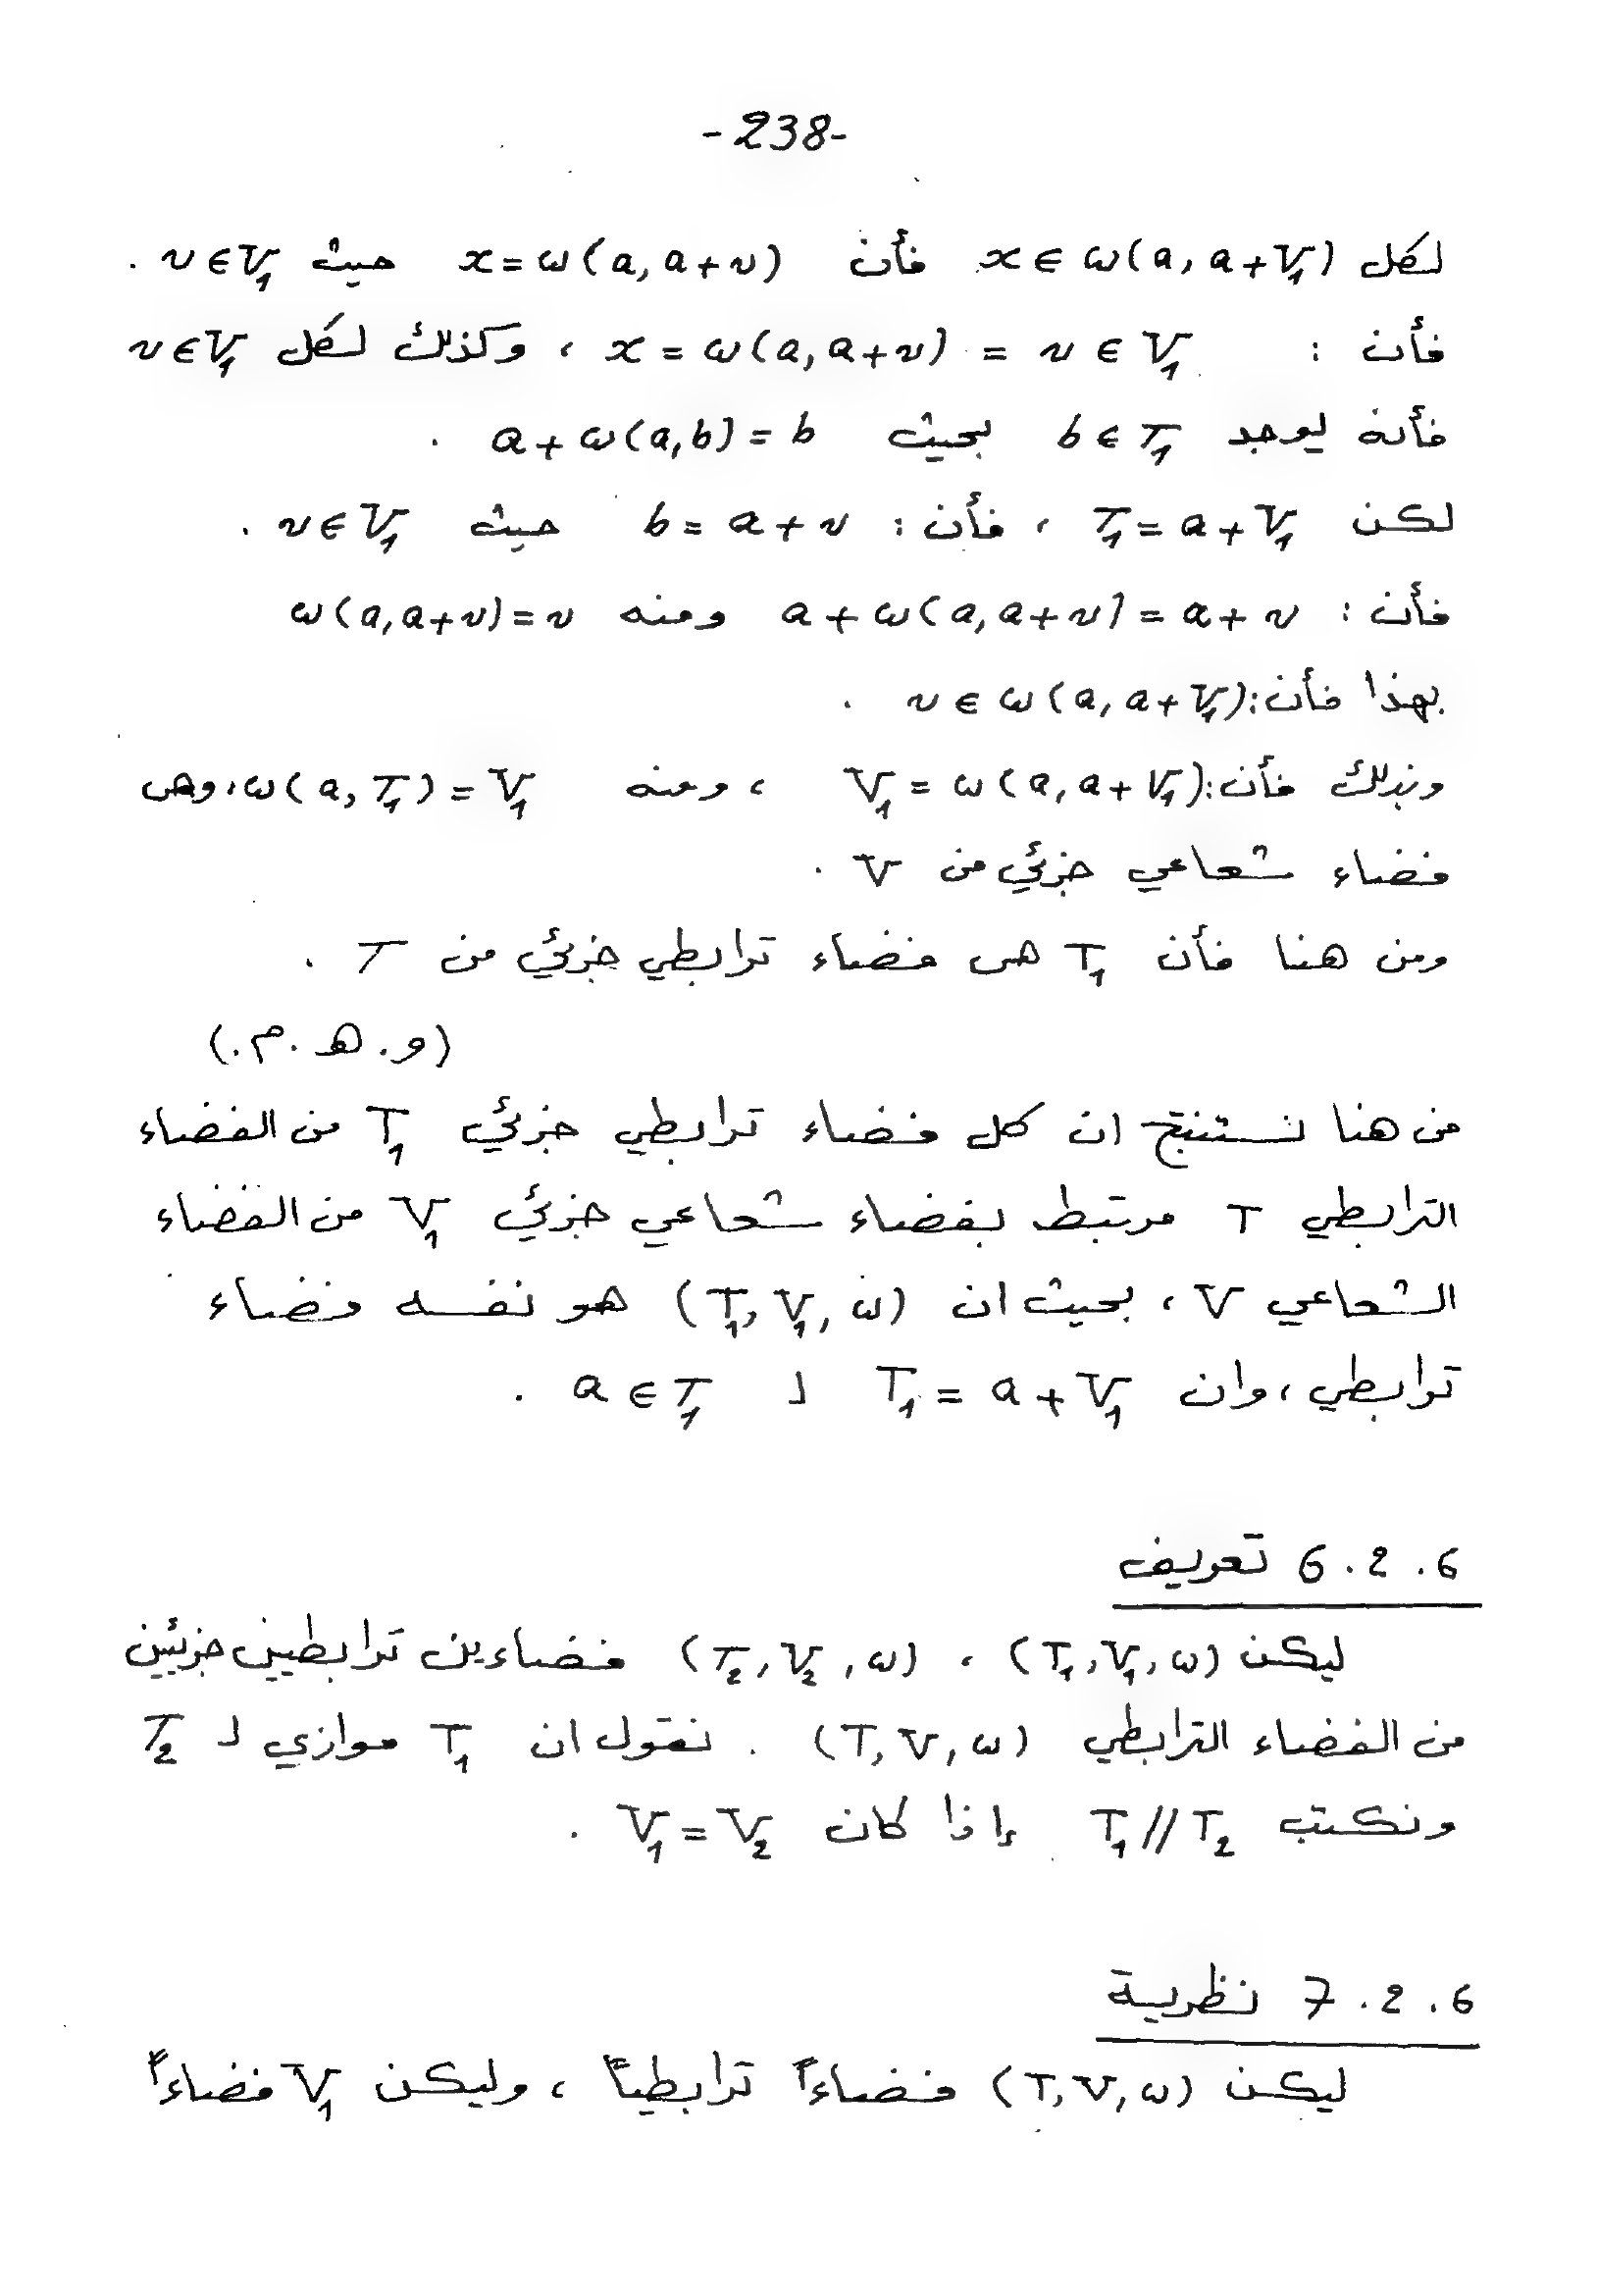 -238-
لكل x ∈ ω(a, a+V₁) فأن x = ω(a, a+v) حيث v ∈ V₁ .
فأن : x = ω(a, a+v) = v ∈ V₁ ، وكذلك لكل v ∈ V₁
فأنه يوجد b ∈ T₁ بحيث a + ω(a,b) = b .
لكن T₁ = a + V₁ ، فأن : b = a + v حيث v ∈ V₁ .
فأن : a + ω(a, a+v) = a + v ومنه ω(a, a+v) = v
بهذا فأن : v ∈ ω(a, a+V₁) .
وبذلك فأن : V₁ = ω(a, a+V₁) ، ومنه ω(a, T₁) = V₁ ، وهى
فضاء شعاعي جزئي من V .
ومن هنا فأن T₁ هى فضاء ترابطي جزئي من T .
(و. هـ. م.)
من هنا نستنتج ان كل فضاء ترابطي جزئي T₁ من الفضاء
الترابطي T مرتبط بفضاء شعاعي جزئي V₁ من الفضاء
الشعاعي V ، بحيث ان (T₁, V₁, ω) هو نفسه فضاء
ترابطي ، وان T₁ = a + V₁ لـ a ∈ T₁ .
6 . 2 . 6 تعريف
ليكن (T₁, V₁, ω) ، (T₂, V₂, ω) فضاءين ترابطيين جزيئين
من الفضاء الترابطي (T, V, ω) . نقول ان T₁ موازي لـ T₂
ونكتب T₁ // T₂ إذا كان V₁ = V₂ .
6 . 2 . 7 نظرية
ليكن (T, V, ω) فضاءاً ترابطياً ، وليكن V₁ فضاءاً